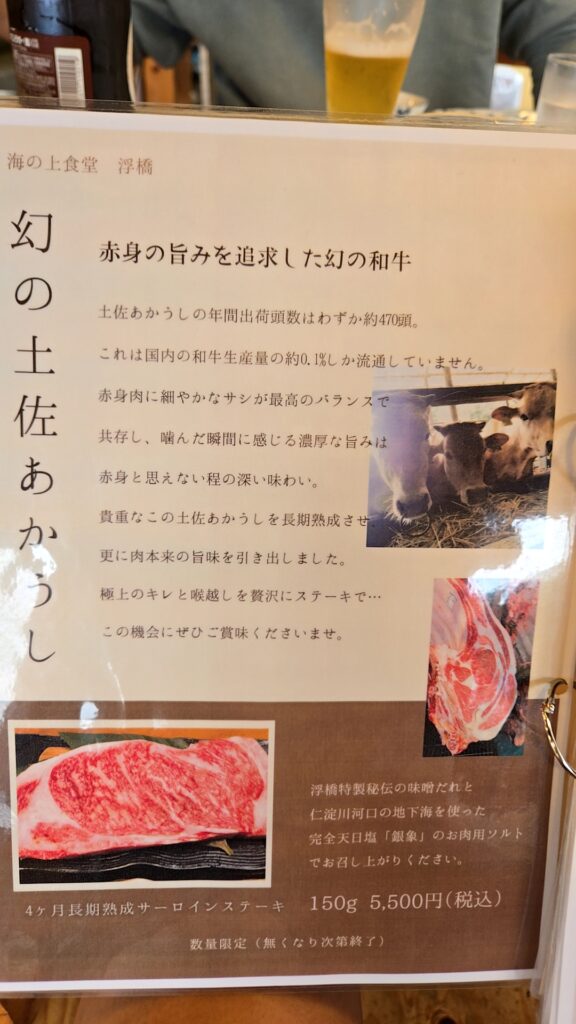 海の上食堂 浮橋
幻の土佐あかうし
赤身の旨みを追求した幻の和牛
土佐あかうしの年間出荷頭数はわずか約470頭。
これは国内の和牛生産量の約0.1%しか流通していません。
赤身肉に細やかなサシが最高のバランスで
共存し、噛んだ瞬間に感じる濃厚な旨みは
赤身と思えない程の深い味わい。
貴重なこの土佐あかうしを長期熟成させ、
更に肉本来の旨味を引き出しました。
極上のキレと喉越しを贅沢にステーキで…
この機会にぜひご賞味くださいませ。
浮橋特製秘伝の味噌だれと
仁淀川河口の地下海を使った
完全天日塩「銀象」のお肉用ソルト
でお召し上がりください。
4ヶ月長期熟成サーロインステーキ 150g 5,500円(税込)
数量限定（無くなり次第終了）